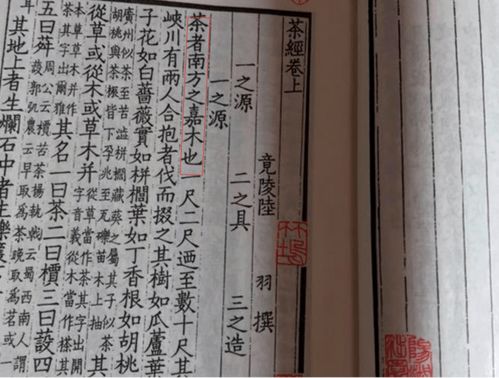 茶經卷上
竟陵陸 羽 撰
一之源 二之具 三之造
一之源
茶者南方之嘉木也 尺二尺迺至數十尺其
峽川有兩人合抱者伐而掇之其樹如瓜蘆葉
子花如白薔薇實如栟櫚葉如丁香根如胡桃
廣州似茶至苦澁栟櫚藏葵之屬其子似茶
胡桃與茶根皆下孕兆至瓦礫苗木上抽
其
從草或從木或草木并
從草當作茶其字出開
字音義從木當作搽其
本草草木并作
茶其字出爾雅
其名一曰茶二曰檟三曰蔎四
五曰荈
周公云檟苦茶揚執戟云蜀西南人謂
蔎郭弘農云早取爲茶晚取爲茗或一
其地上者生爛石中者生櫟壤